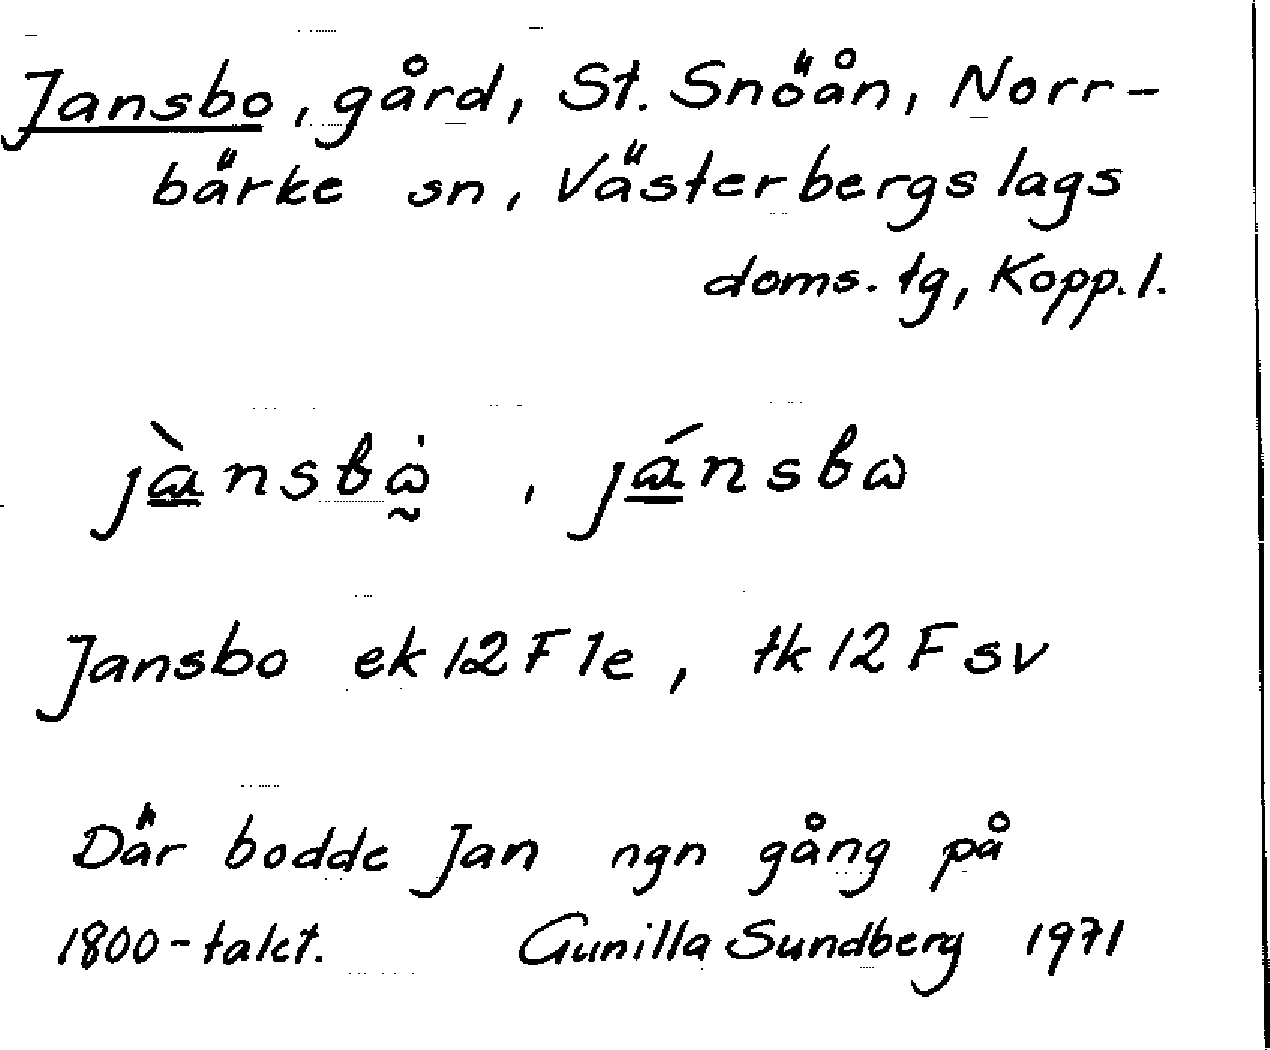 Jansbo, gård, St. Snöån, Norr-
bärke sn, Västerbergslags
doms. tg, Kopp. l.
jànsbω̰̇, jánsbω
Jansbo ek 12 F 1e, tk 12 F sv
Där bodde Jan ngn gång på
1800-talet. Gunilla Sundberg 1971